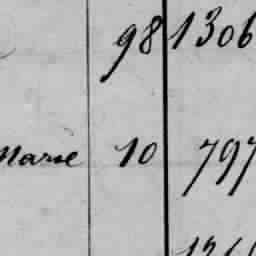 98 1306
Marie 10 797